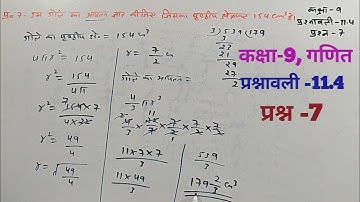 प्र०7- उस गोले का आयतन ज्ञात कीजिए जिसका पृष्ठीय क्षेत्रफल 154 cm² है।
कक्षा-9
प्रश्नावली-11.4
प्रश्न-7
गोले का पृष्ठीय क्षे० = 154 cm²
4πr² = 154
r² = 154/4π
r² = 154×7/4×22
r² = 49/4
r = √49/4
r = 7/2 cm
गोले का आयतन =
4/3 πr³
4/3 × 22/7 × 7/2 × 7/2 × 7/2
11×7×7/3
11×49/3
3)539(179
3
23
21
29
27
2
539/3
179 2/3 cm³
कक्षा-9, गणित
प्रश्नावली -11.4
प्रश्न -7